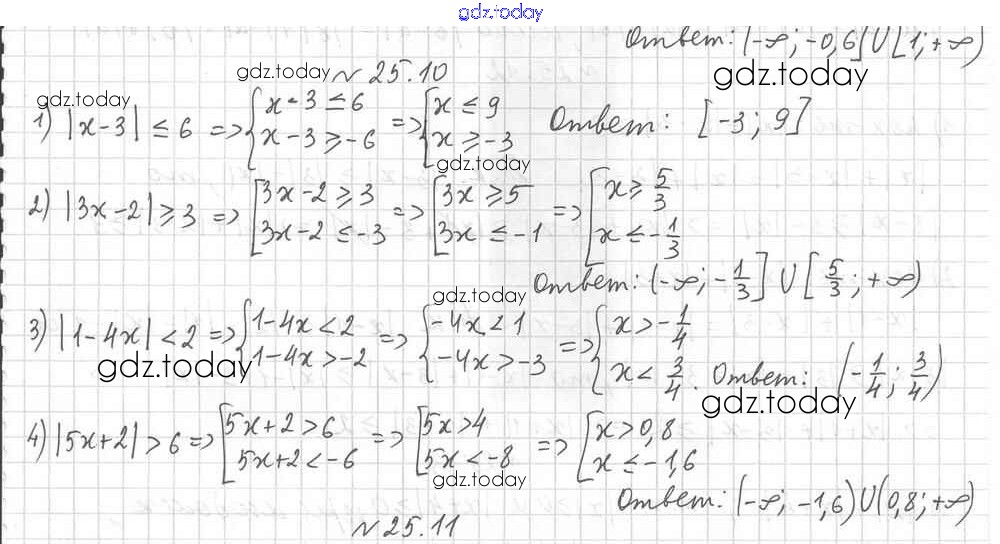 gdz.today
Ответ: (-∞; -0,6] ∪ [1; +∞)
gdz.today
gdz.today № 25.10
gdz.today
1) |x-3| ≤ 6 => { x-3 ≤ 6 ; x-3 ≥ -6 => { x ≤ 9 ; x ≥ -3 Ответ: [-3; 9]
gdz.today
2) |3x-2| ≥ 3 => [ 3x-2 ≥ 3 ; 3x-2 ≤ -3 => [ 3x ≥ 5 ; 3x ≤ -1 => [ x ≥ 5/3 ; x ≤ -1/3
Ответ: (-∞; -1/3] ∪ [5/3; +∞)
gdz.today
3) |1-4x| < 2 => { 1-4x < 2 ; 1-4x > -2 => { -4x < 1 ; -4x > -3 => { x > -1/4 ; x < 3/4. Ответ: (-1/4; 3/4)
gdz.today
gdz.today
4) |5x+2| > 6 => [ 5x+2 > 6 ; 5x+2 < -6 => [ 5x > 4 ; 5x < -8 => [ x > 0,8 ; x ≤ -1,6
gdz.today
Ответ: (-∞; -1,6) ∪ (0,8; +∞)
№ 25.11